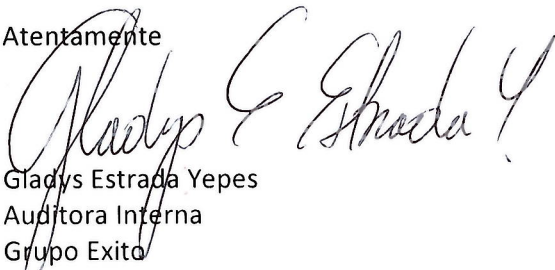 Atentamente
Gladys E Estrada Y
Gladys Estrada Yepes
Auditora Interna
Grupo Exito